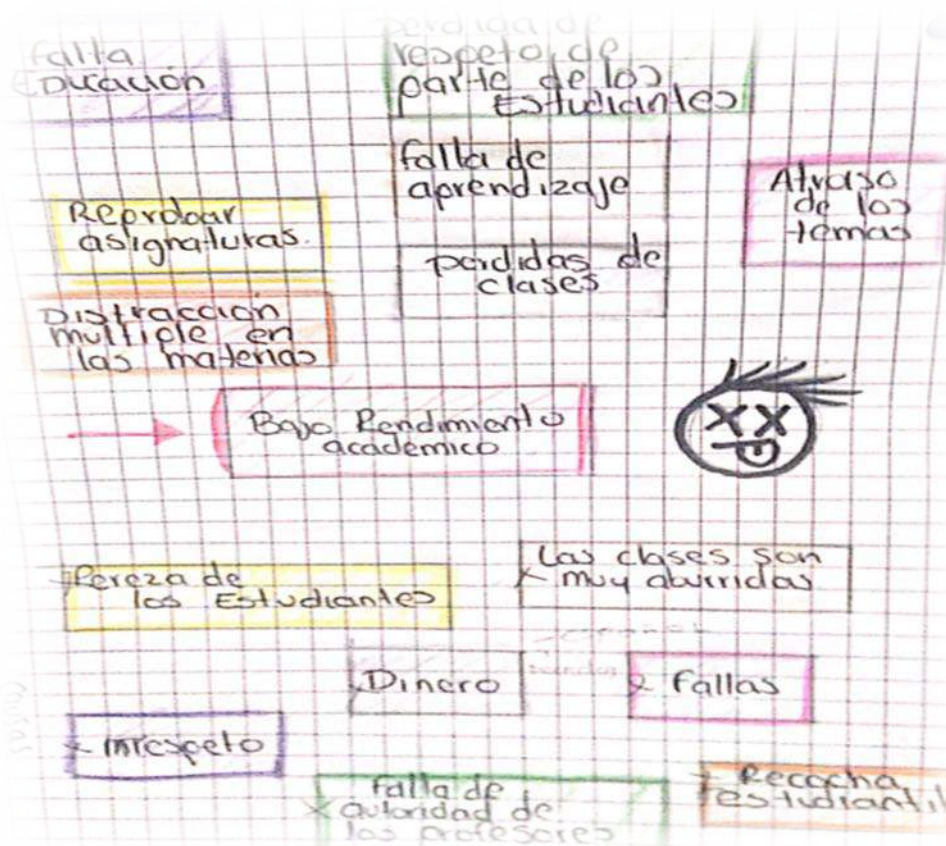 falta
Educación
perdida de
respeto de
parte de los
Estudiantes
falla de
aprendizaje
Atraso
de los
temas
Reprobar
asignaturas.
perdidas de
clases
Distracción
multiple en
las materias
Bajo Rendimiento
academico
Pereza de
los Estudiantes
Las clases son
muy aburridas
Dinero
Fallas
irrespeto
falla de
autoridad de
los profesores
Recocha
estudiantil